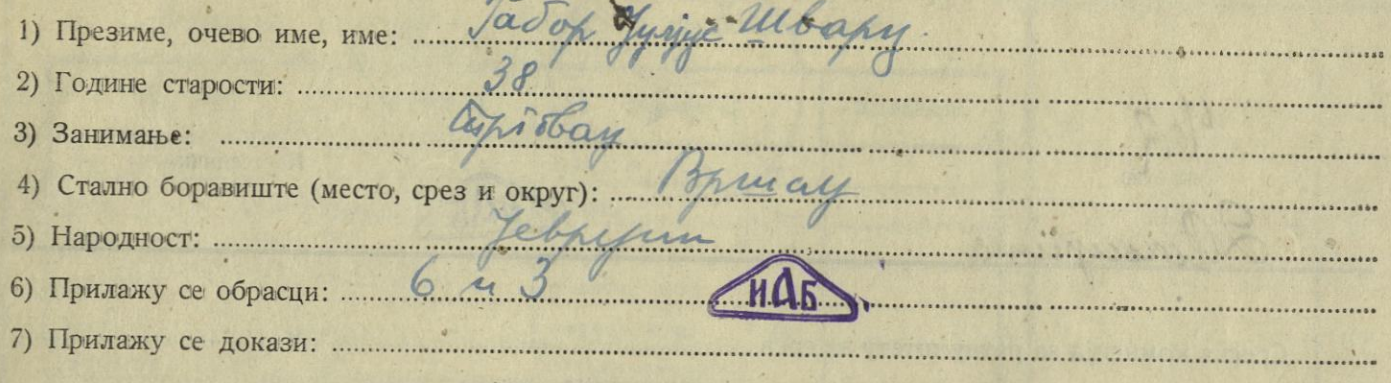 1) Презиме, очево име, име: Габор Јулјус Шварц
2) Године старости: 38
3) Занимање: трговац
4) Стално боравиште (место, срез и округ): Вршац
5) Народност: Јеврејин
6) Прилажу се обрасци: 6 и 3 ИАБ
7) Прилажу се докази: